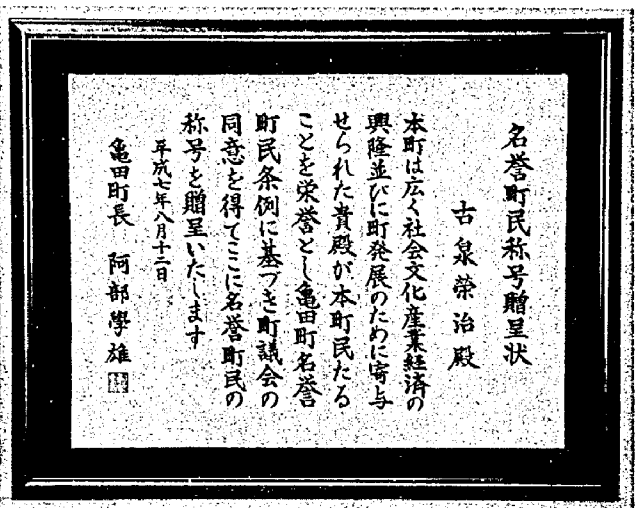 名誉町民称号贈呈状
古泉榮治殿
本町は広く社会文化産業経済の
興隆並びに町発展のために寄与
せられた貴殿が本町民たる
ことを栄誉とし亀田町名誉
町民条例に基づき町議会の
同意を得てここに名誉町民の
称号を贈呈いたします
平成七年八月十二日
亀田町長 阿部學雄